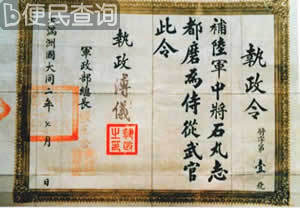 便民查询
執政令
補陸軍中將石丸志
都磨為侍從武官
此令
執政 溥儀
軍政部總長
滿洲國大同二年七月 日